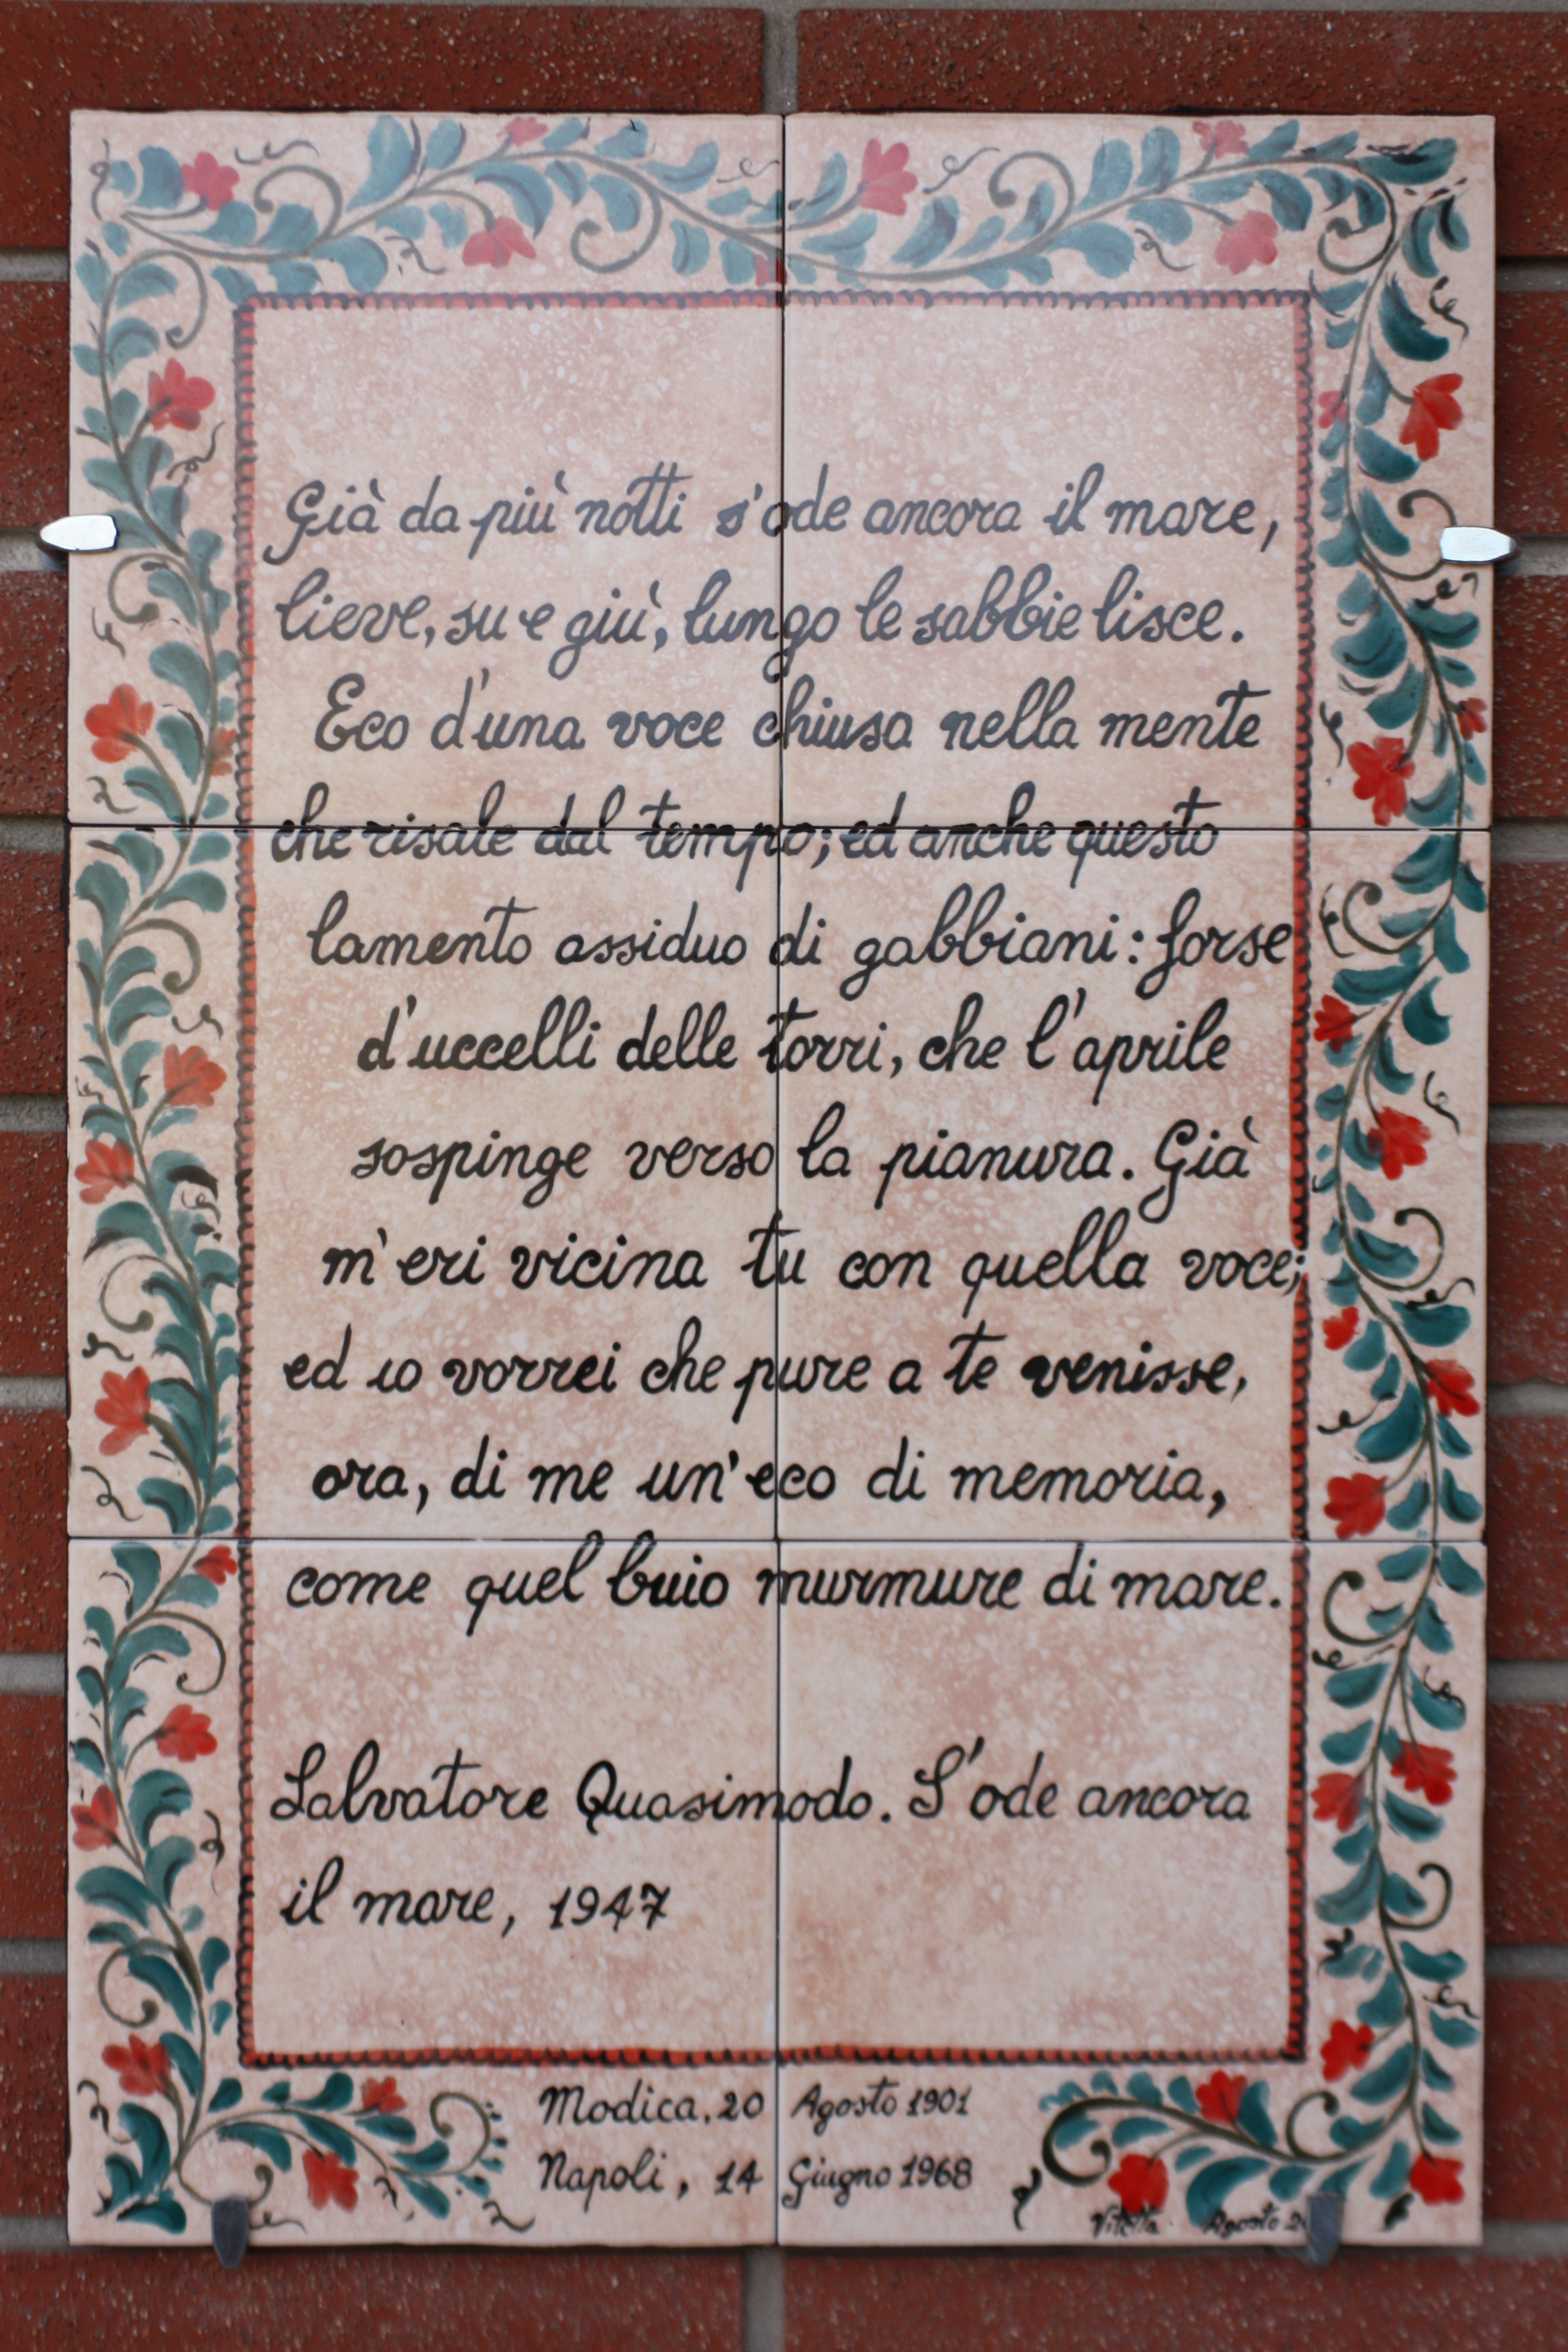 Già da più notti s'ode ancora il mare,
lieve, su e giù, lungo le sabbie lisce.
Eco d'una voce chiusa nella mente
che risale dal tempo; ed anche questo
lamento assiduo di gabbiani: forse
d'uccelli delle torri, che l'aprile
sospinge verso la pianura. Già
m'eri vicina tu con quella voce;
ed io vorrei che pure a te venisse,
ora, di me un'eco di memoria,
come quel buio murmure di mare.
Salvatore Quasimodo. S'ode ancora
il mare, 1947
Modica, 20 Agosto 1901
Napoli, 14 Giugno 1968
Agosto